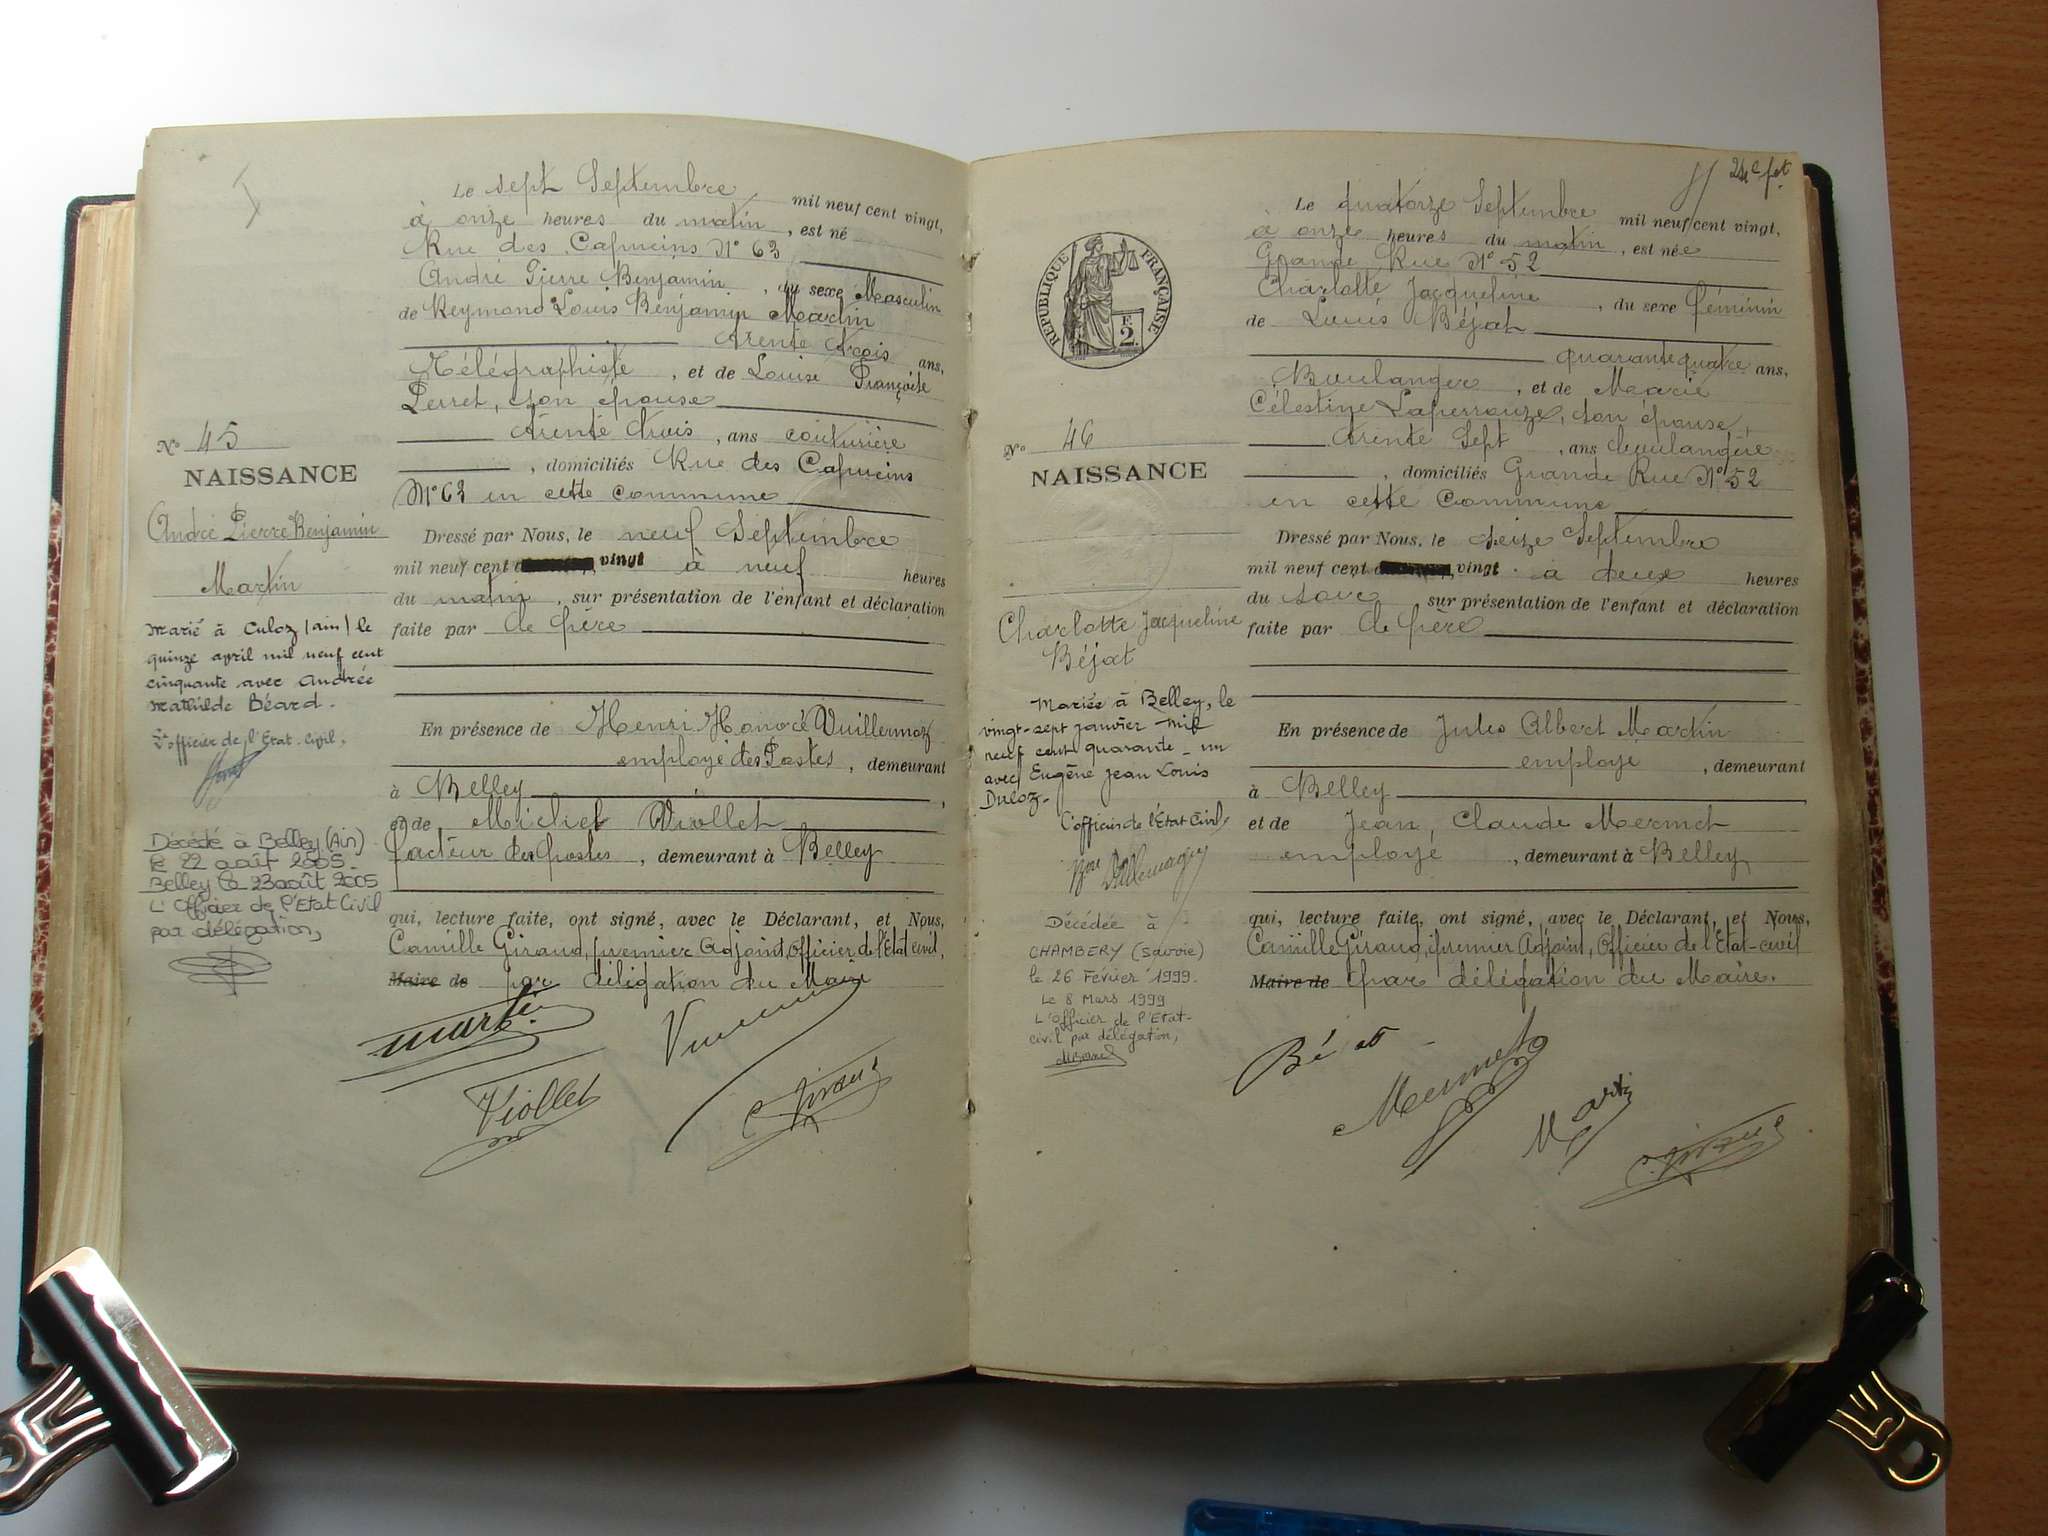 Le sept Septembre mil neuf cent vingt,
à onze heures du matin, est né
Rue des Capucins N° 63
André Pierre Benjamin, du sexe Masculin
de Reymond Louis Benjamin Martin
trente trois ans,
Télégraphiste, et de Louise Françoise
Perret, son épouse
trente trois, ans couturière
, domiciliés Rue des Capucins
N° 63 en cette commune
N° 45
NAISSANCE
André Pierre Benjamin
Martin
Dressé par Nous, le neuf Septembre
mil neuf cent vingt à neuf heures
du matin, sur présentation de l'enfant et déclaration
faite par le père
Marié à Culoz (Ain) le
quinze april mil neuf cent
cinquante avec Andrée
Mathilde Béard.
L'officier de l'Etat-civil.
En présence de Henri Honoré Vuillermoz
employé des Postes, demeurant
à Belley,
et de Michel Viollet
facteur des postes, demeurant à Belley
Décédé à Belley (Ain)
le 22 août 2005.
Belley le 23 août 2005
L'Officier de l'Etat Civil
par délégation,
qui, lecture faite, ont signé, avec le Déclarant, et Nous,
Camille Giraud, premier Adjoint, Officier de l'Etat civil,
Maire de par délégation du Maire
Martin
Viollet
C. Giraud
24e fet
Le quatorze Septembre mil neuf cent vingt,
à onze heures du matin, est née
Grande Rue N° 52
Charlotte Jacqueline, du sexe féminin
de Louis Béjat
quarante quatre ans,
Boulanger, et de Marie
Célestine Laperrouze, son épouse,
trente sept, ans boulangère
, domiciliés Grande Rue N° 52
en cette commune
RÉPUBLIQUE FRANÇAISE
F.
2.
N° 46
NAISSANCE
Charlotte Jacqueline
Béjat
Dressé par Nous, le seize Septembre
mil neuf cent vingt à deux heures
du soir sur présentation de l'enfant et déclaration
faite par le père
Mariée à Belley, le
vingt-sept janvier mil
neuf cent quarante-un
avec Eugène Jean Louis
Duloz.
L'officier de l'Etat Civil,
En présence de Jules Albert Martin
employé, demeurant
à Belley
et de Jean, Claude Mermet
employé, demeurant à Belley
Décédée à
CHAMBERY (Savoie)
le 26 Février 1999.
Le 8 Mars 1999
L'Officier de l'Etat-
civil par délégation,
qui, lecture faite, ont signé, avec le Déclarant, et Nous,
Camille Giraud, premier Adjoint, Officier de l'Etat-civil
Maire de par délégation du Maire.
Béjat
Mermet
Martin
C. Giraud